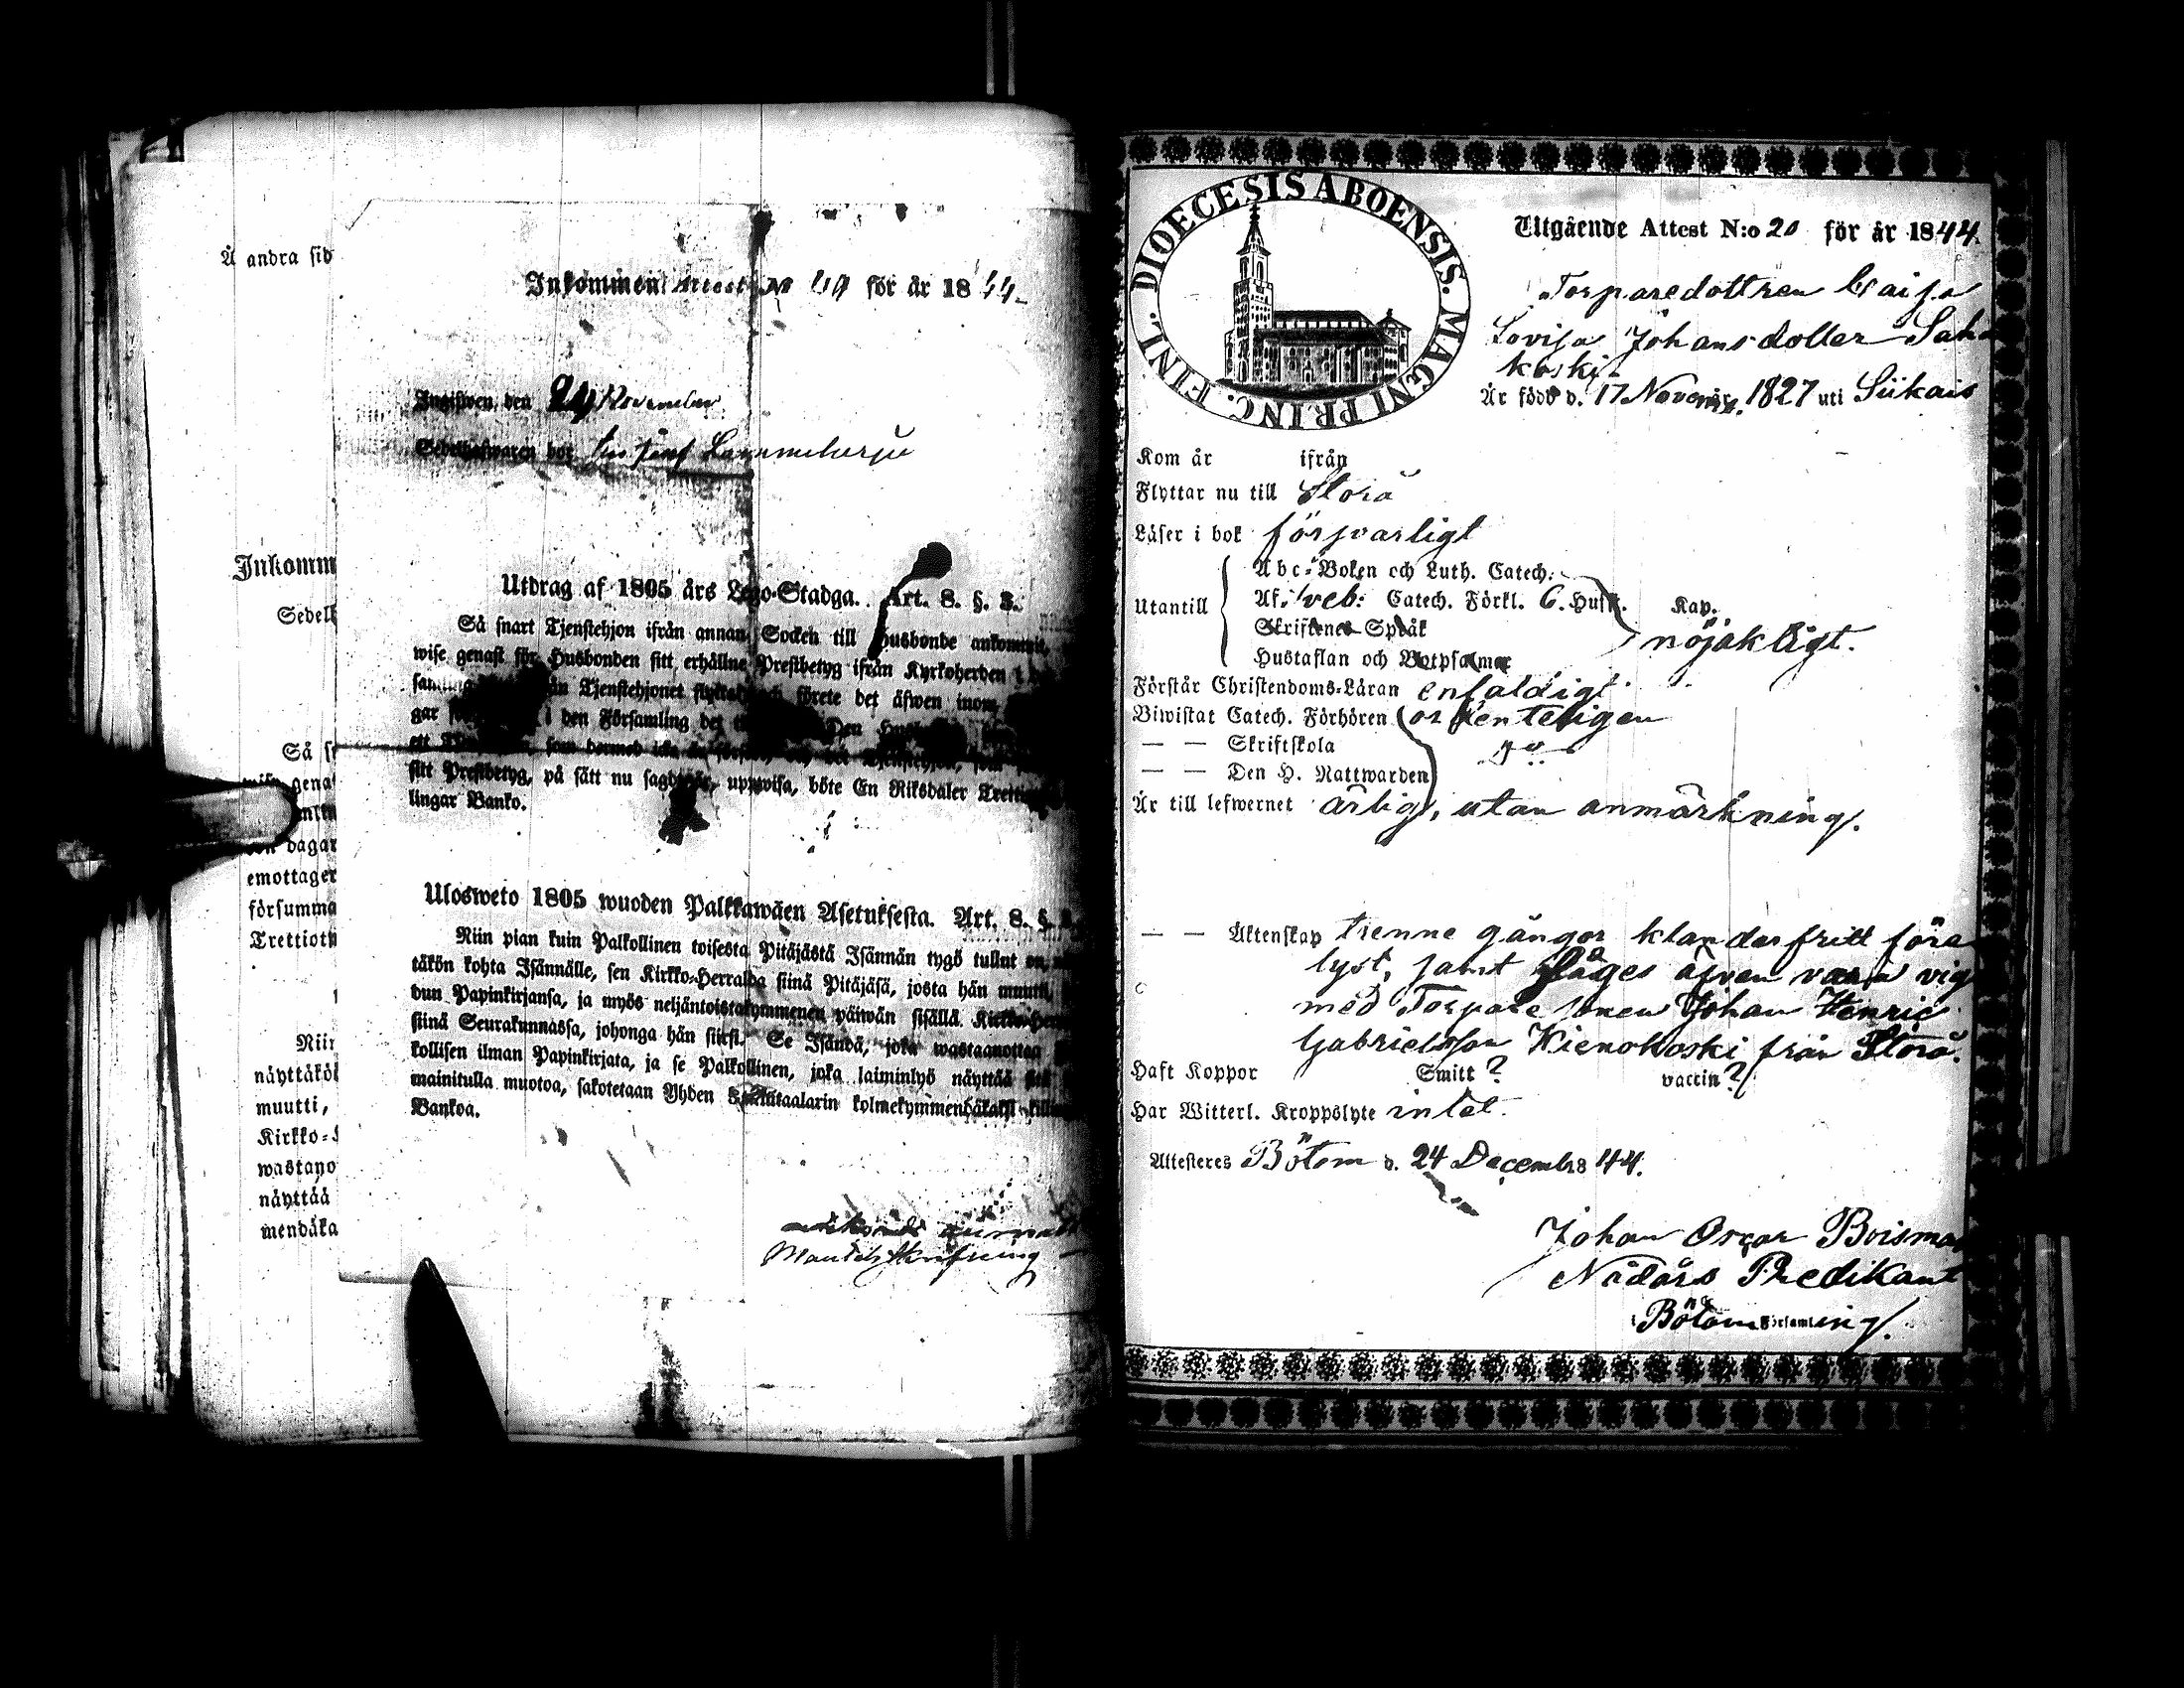 Å andra sid
Inkomm
Sedelh
Så sn
wise gena
dagar
emottager
försumma
Trettiotw
Niin
näyttäköö
muutti,
Kirkko-H
wastano
näyttää
mendäka
Inkommen Attest No för år 1844
Ingifwen den 24 November
Sedelhafwaren bor
Utdrag af 1805 års Lego-Stadga. Art. 8. §. 3.
Så snart Tjenstehjon ifrån annan Socken till Husbonde ankommit,
wise genast för Husbonden sitt erhållne Prestbetyg ifrån Kyrkoherden i
Tjenstehjonet förete det äfwen inom
i den Församling det Den
Tjenstehjon, som
sitt Prestbetyg, på sätt nu sagdt är, uppwisa, böte En Riksdaler Trettio
lingar Banko.
Ulosweto 1805 wuoden Palkkawäen Asetuksesta. Art. 8. §. 3.
Niin pian kuin Palkollinen toisesta Pitäjästä Isännän tygö tullut on,
täkön kohta Isännälle, sen Kirkko-Herralda siinä Pitäjäsä, josta hän muutti,
dun Papinkirjansa, ja myös neljäntoistakymmenen päiwän sisällä Kirkko-Herra
siinä Seurakunnassa, johonga hän siirsi. Se Isändä, joka wastaanottaa
kollisen ilman Papinkirjata, ja se Palkollinen, joka laiminlyö näyttää sitä
mainitulla muotoa, sakotetaan Yhden Riikintaalarin kolmekymmendäkaksi killingiä
Bankoa.
Mantals skrifning
DIOECESIS ABOENSIS. MAGNI PRINC. FINL.
Utgående Attest N:o 20 för år 1844.
Torparedottren Caisa
Lovisa Johansdotter Saha
koski
Är född d. 17 Novembr. 1827 uti Siikais
Kom år ifrån
Flyttar nu till Storå
Läser i bok försvarligt
Utantill
Abc-Boken och Luth. Catech.
Af Sveb: Catech. Förkl. 6. Husk. Kap.
Skriftenes Språk
Hustaflan och Botpsalmar
nöjaktigt.
Förstår Christendoms-Läran enfaldigt
Biwistat Catech. Förhören ordenteligen
— — Skriftskola
— — Den H. Nattwarden
Är till lefwernet ärlig, utan anmärkning.
— — Äktenskap trenne gånger klanderfritt före
lyst, samt säges äfven vara vig
med Torpare sonen Johan Henric
Gabrielsson Kienokoski från Storå.
Haft Koppor Smitt? vaccin?
Har Witterl. Kroppslyte intet.
Attesteres Bötom d. 24 Decemb. 1844.
Johan Oscar Boisman
Nådårs Predikant
i Bötom Församling.